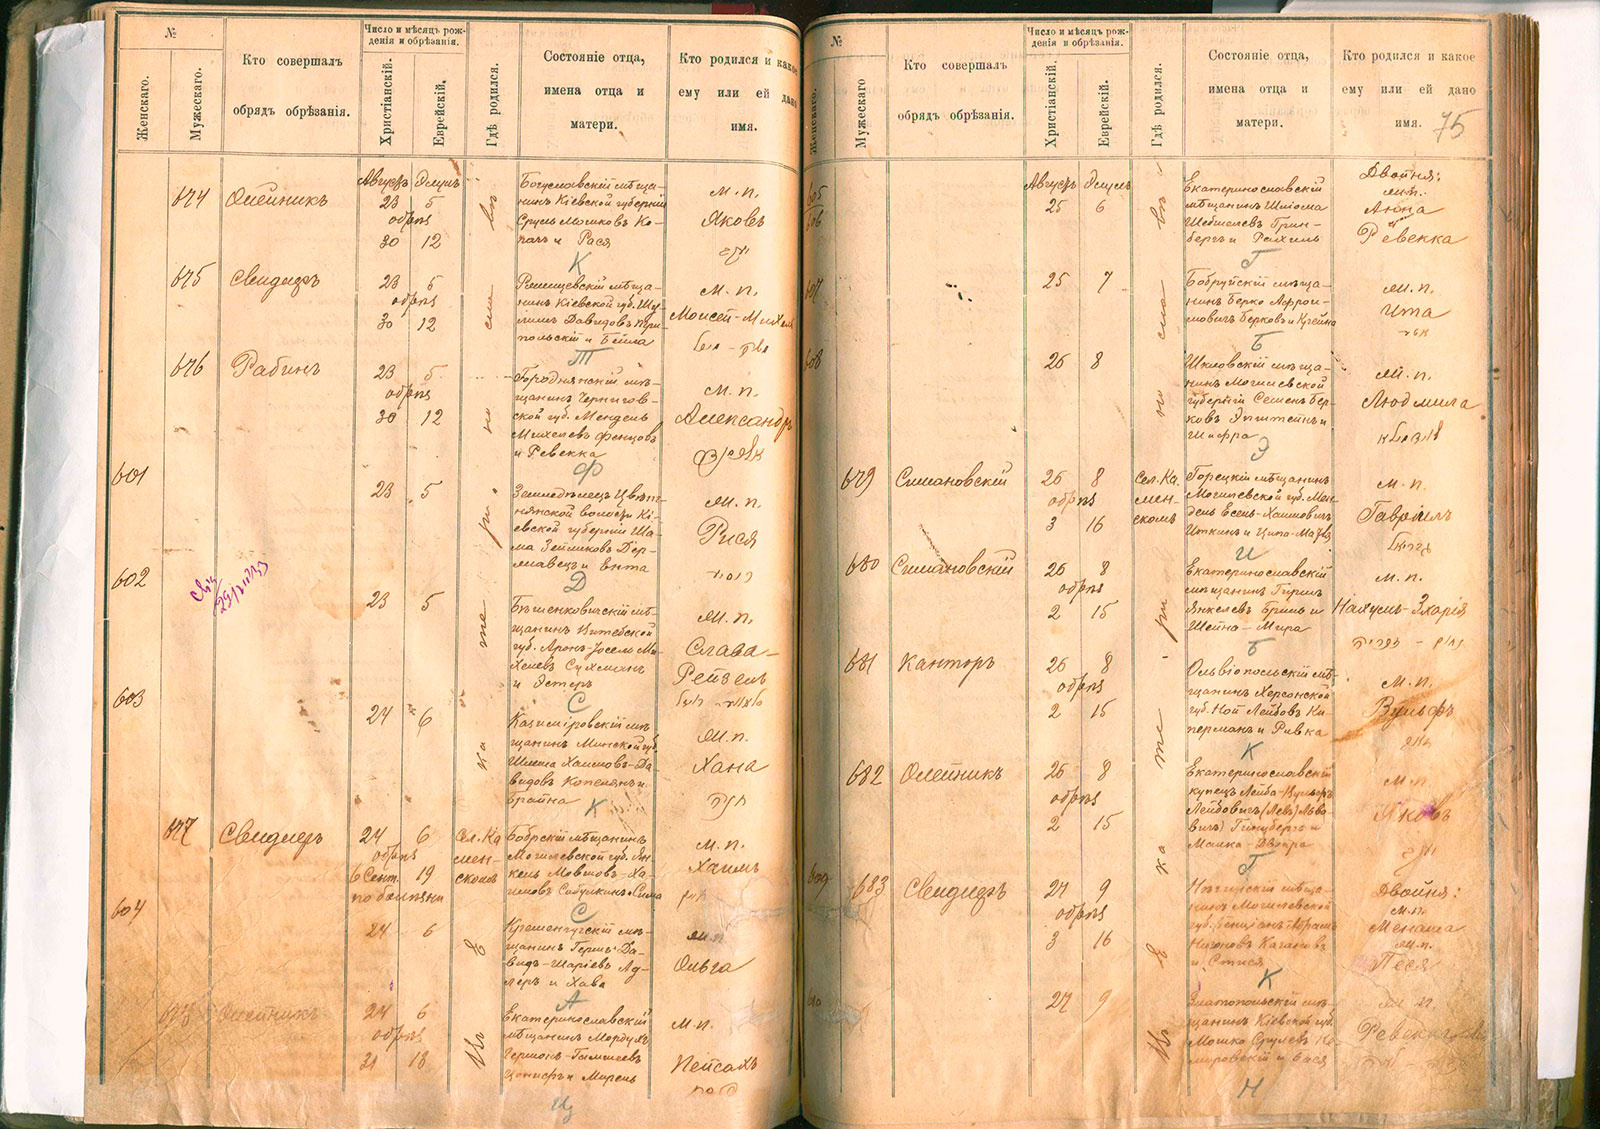 №
Женскаго.
Мужескаго.
Кто совершалъ
обрядъ обрѣзанія.
Число и мѣсяцъ рож-
денія и обрѣзанія.
Христіанскій.
Еврейскій.
Гдѣ родился.
Состояніе отца,
имена отца и
матери.
Кто родился и какое
ему или ей дано
имя.
674
Олейникъ
Августъ Элулъ
23 5
обрѣз
30 12
Богуславскій мѣща-
нинъ Кіевской губерніи
Сруль Мошковъ Ко-
панъ и Рася
К
м. п.
Яковъ
675
Свидлеръ
23 5
обрѣз
30 12
мѣща-
нинъ Кіевской губ. Шу-
лимъ Давидовъ Три-
польскій и Бейла
Т
м. п.
Моисей-Михель
676
Рабинъ
23 5
обрѣз
30 12
Городнянскій мѣ-
щанинъ Чернигов-
ской губ. Мендель
Михелевъ Фенцовъ
и Ревекка
Ф
м. п.
Александръ
601
23 5
Земледѣлецъ
волости Кі-
евской губерніи Ша-
ма Зейликовъ Дер-
лавецъ и Ента
Д
м. п.
Рися
602
23 5
Бѣшенковичскій мѣ-
щанинъ Витебской
губ. Аронъ-Іосель Ми-
хелевъ Сухманъ
и Эстеръ
С
м. п.
Слава-
Рейзель
603
24 6
Казимировскій мѣ-
щанинъ Минской губ.
Шлема Хаимовъ-Да-
видовъ Копелянъ и
Брайна
К
м. п.
Хана
677
Свидлеръ
24 6
обрѣз
6 Сент. 19
по болѣзни
Сел. Ка
мен-
скомъ
Бобрскій мѣщанинъ
Могилевской губ. Ян-
кель Мовшовъ-Ха-
имовъ Сабулкинъ и Сима
С
м. п.
Хаимъ
604
24 6
Кременчугскій мѣ-
щанинъ Гершъ Да-
видъ-Шаріевъ Ад-
леръ и Хава
А
м. п.
Ольга
678
Олейникъ
24 6
обрѣз
31 13
Екатеринославскій
мѣщанинъ Мордухъ
Гершонъ-Гимшеевъ
Ционифъ и Мирель
Ц
м. п.
Пейсахъ
Въ Екатеринославѣ
№
Женскаго.
Мужескаго
Кто совершалъ
обрядъ обрѣзанія.
Число и мѣсяцъ рож-
денія и обрѣзанія.
Христіанскій.
Еврейскій.
Гдѣ родился.
Состояніе отца,
имена отца и
матери.
Кто родился и какое
ему или ей дано
имя.
75
605
606
Августъ Элулъ
25 6
Екатеринославскій
мѣщанинъ Шлиома
Шебшелевъ Грин-
бергъ и Рахиль
Г
Двойня:
м.п.
Анна
Ревекка
607
25 7
Бобруйскій мѣща-
нинъ Берко Афрои-
мовичъ Берковъ и Крейна
Б
м. п.
Ита
608
26 8
Шкловскій мѣща-
нинъ Могилевской
губерніи Семенъ Бер-
ковъ Эпштейнъ и
Шифра
Э
м. п.
Людмила
679
Симановскій
26 8
обрѣз
3 16
Сел. Ка-
мен-
скомъ
Горецкій мѣщанинъ
Могилевской губ. Мен-
дель Есель-Хаимовичъ
Иткинъ и Ципа-Малка
И
м. п.
Гавріилъ
680
Симановскій
26 8
обрѣз
2 15
Екатеринославскій
мѣщанинъ Гиршъ
Янкелевъ Бриль и
Шейна-Мира
Б
м. п.
Нахумъ-Зхарія
681
Канторъ
26 8
обрѣз
2 15
Ольвіопольскій мѣ-
щанинъ Херсонской
губ. Ной Лейбовъ Ки-
перманъ и Ривка
К
м. п.
Вульфъ
682
Олейникъ
26 8
обрѣз
2 15
Екатеринославскій
купецъ Лейба-Вульфъ
Лейбовичъ (Левъ Льво-
вичъ) Гинцбергъ и
Малка-Двойра
Г
м. п.
Яковъ
609
683
Свидлеръ
27 9
обрѣз
3 16
мѣща-
нинъ Могилевской
губ. Бенціанъ-Абрамъ
Нисоновъ Кагановъ
и Стися
К
Двойня:
м. п.
Менаша
м. п.
Песя
610
27 9
Златопольскій мѣ-
щанинъ Кіевской губ.
Мошко Срулевъ Ко-
мировскій и Бася
м. п.
Въ Екатеринославѣ